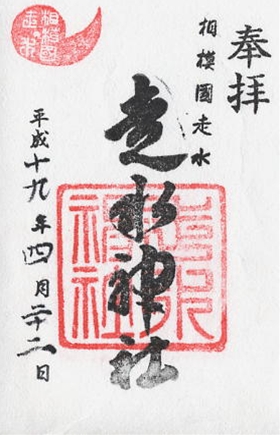 奉拝
相模國走水
走水神社
平成十九年四月二十二日
相模國
走水
走水
神社